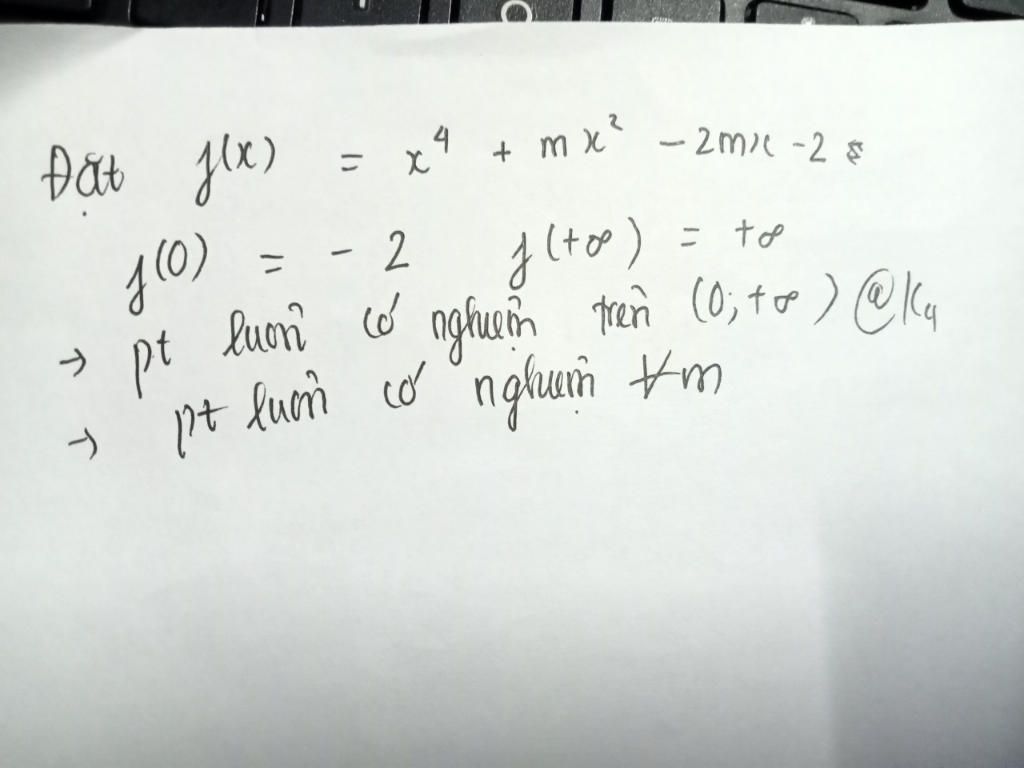 Đặt f(x) = x⁴ + mx² - 2mx - 2
f(0) = - 2 f(+∞) = +∞
→ pt luôn có nghiệm trên (0; +∞) @K4
→ pt luôn có nghiệm ∀m